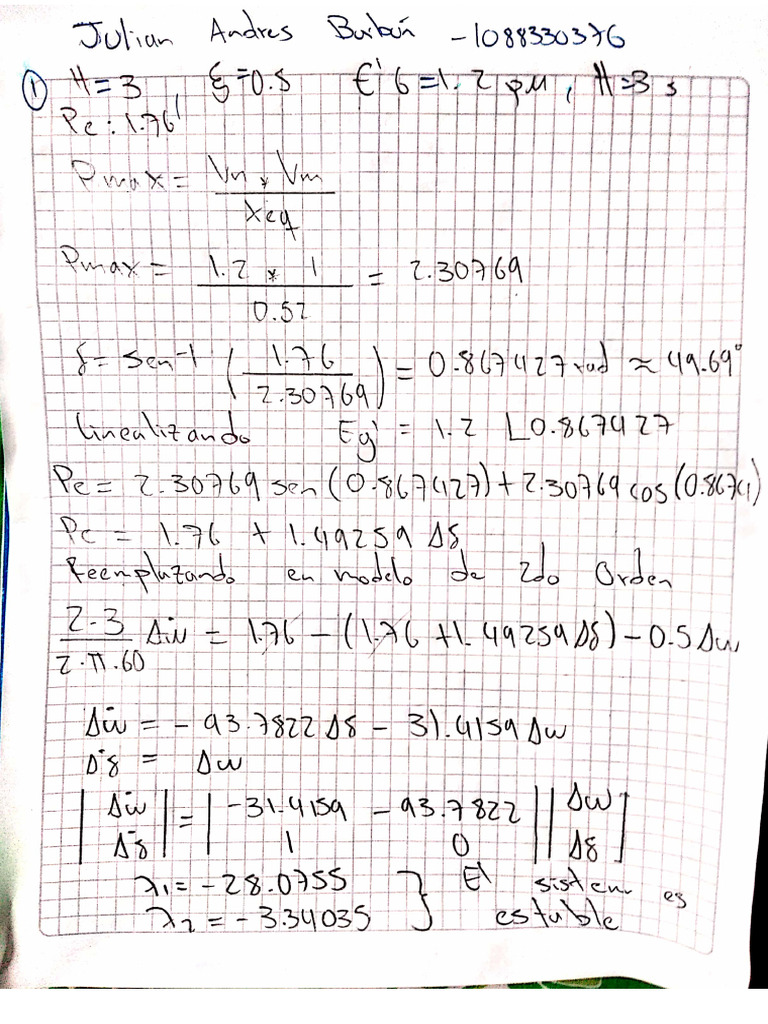 Julian Andres Burbun - 1088330376
① H=3, ξ=0.5 E'G=1.2 pu, H=3 s
Pe: 1.76
Pmax = Vn * Vm / Xeq
Pmax = 1.2 * 1 / 0.52 = 2.30769
δ = sen⁻¹ (1.76 / 2.30769) = 0.867427 rad ≈ 49.69°
linealizando Eg' = 1.2 ∟0.867427
Pe = 2.30769 sen(0.867427) + 2.30769 cos(0.8674)
Pe = 1.76 + 1.49259 Δδ
Reemplazando en modelo de 2do Orden
2·3 / 2·π·60 Δẇ = 1.76 - (1.76 + 1.49259 Δδ) - 0.5 Δw
Δẇ = - 93.7822 Δδ - 31.4159 Δw
Δ̇δ = Δw
|Δẇ| = |-31.4159 -93.7822| |Δw|
|Δ̇δ| |1 0| |Δδ|
λ1 = -28.0755 } El sistema es
λ2 = -3.34035 } estable